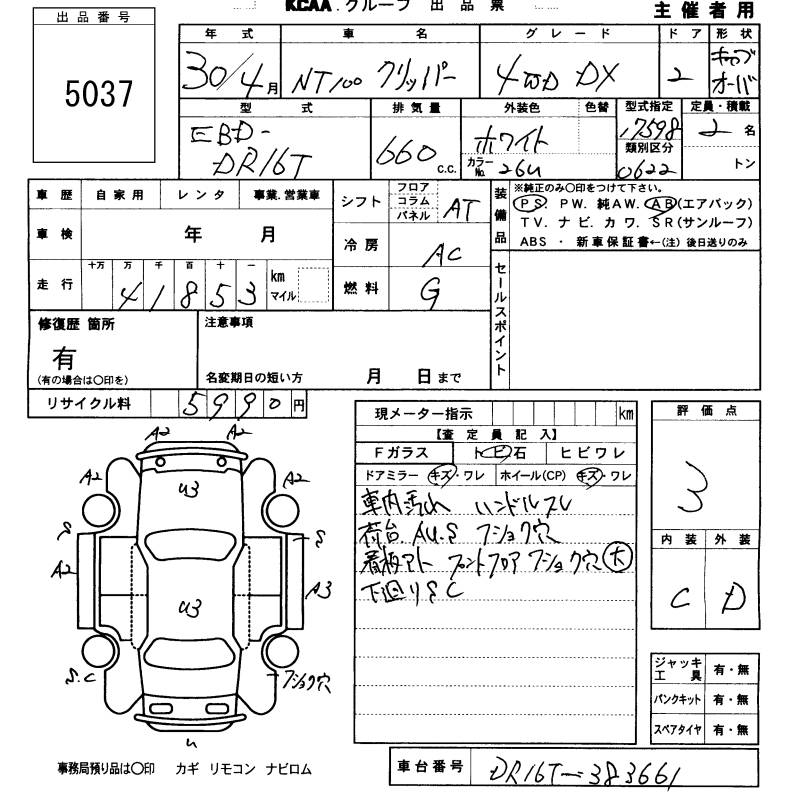 KCAA.グループ 出品票 主催者用
出品番号
5037
年式 車名 グレード ドア 形状
30/4月 NT100 クリッパー 4WD DX 2 キャブオーバ
型式 排気量 外装色 色替 型式指定 定員・積載
EBD-DR16T 660 c.c. ホワイト カラーNo. 26U 17598 2名
類別区分
0622 トン
車歴 自家用 レンタ 事業.営業車 シフト フロア コラム パネル AT
装備品 ※純正のみ○印をつけて下さい。
PS PW. 純AW. AB(エアバック)
TV. ナビ. カワ. SR(サンルーフ)
ABS ・ 新車保証書←(注) 後日送りのみ
車検 年 月 冷房 AC
走行 十万 万 千 百 十 一 km マイル
41853
燃料 G
セールスポイント
修復歴 箇所 注意事項
有
(有の場合は○印を) 名変期日の短い方 月 日まで
リサイクル料 5990円
現メーター指示 km
【査定員記入】
Fガラス トビ石 ヒビワレ
ドアミラー キズ・ワレ ホイール(CP) キズ・ワレ
車内汚れ ハンドルスレ
荷台 AU.S フショク穴
看板アト フロントフロア フショク穴 大
下廻りSC
評価点
3
内装 外装
C D
ジャッキ工具 有・無
パンクキット 有・無
スペアタイヤ 有・無
A2 A2
A2 U3 A2
S S
A2 U3 A3
S.C フショク穴
U
事務局預り品は○印 カギ リモコン ナビロム
車台番号 DR16T-383661